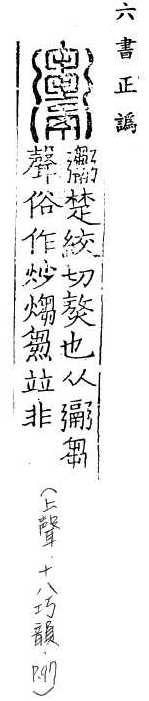 六書正譌
楚絞切熬也从䰜芻
聲俗作炒煼㷅竝非
(上聲.十八巧韻.P.97)